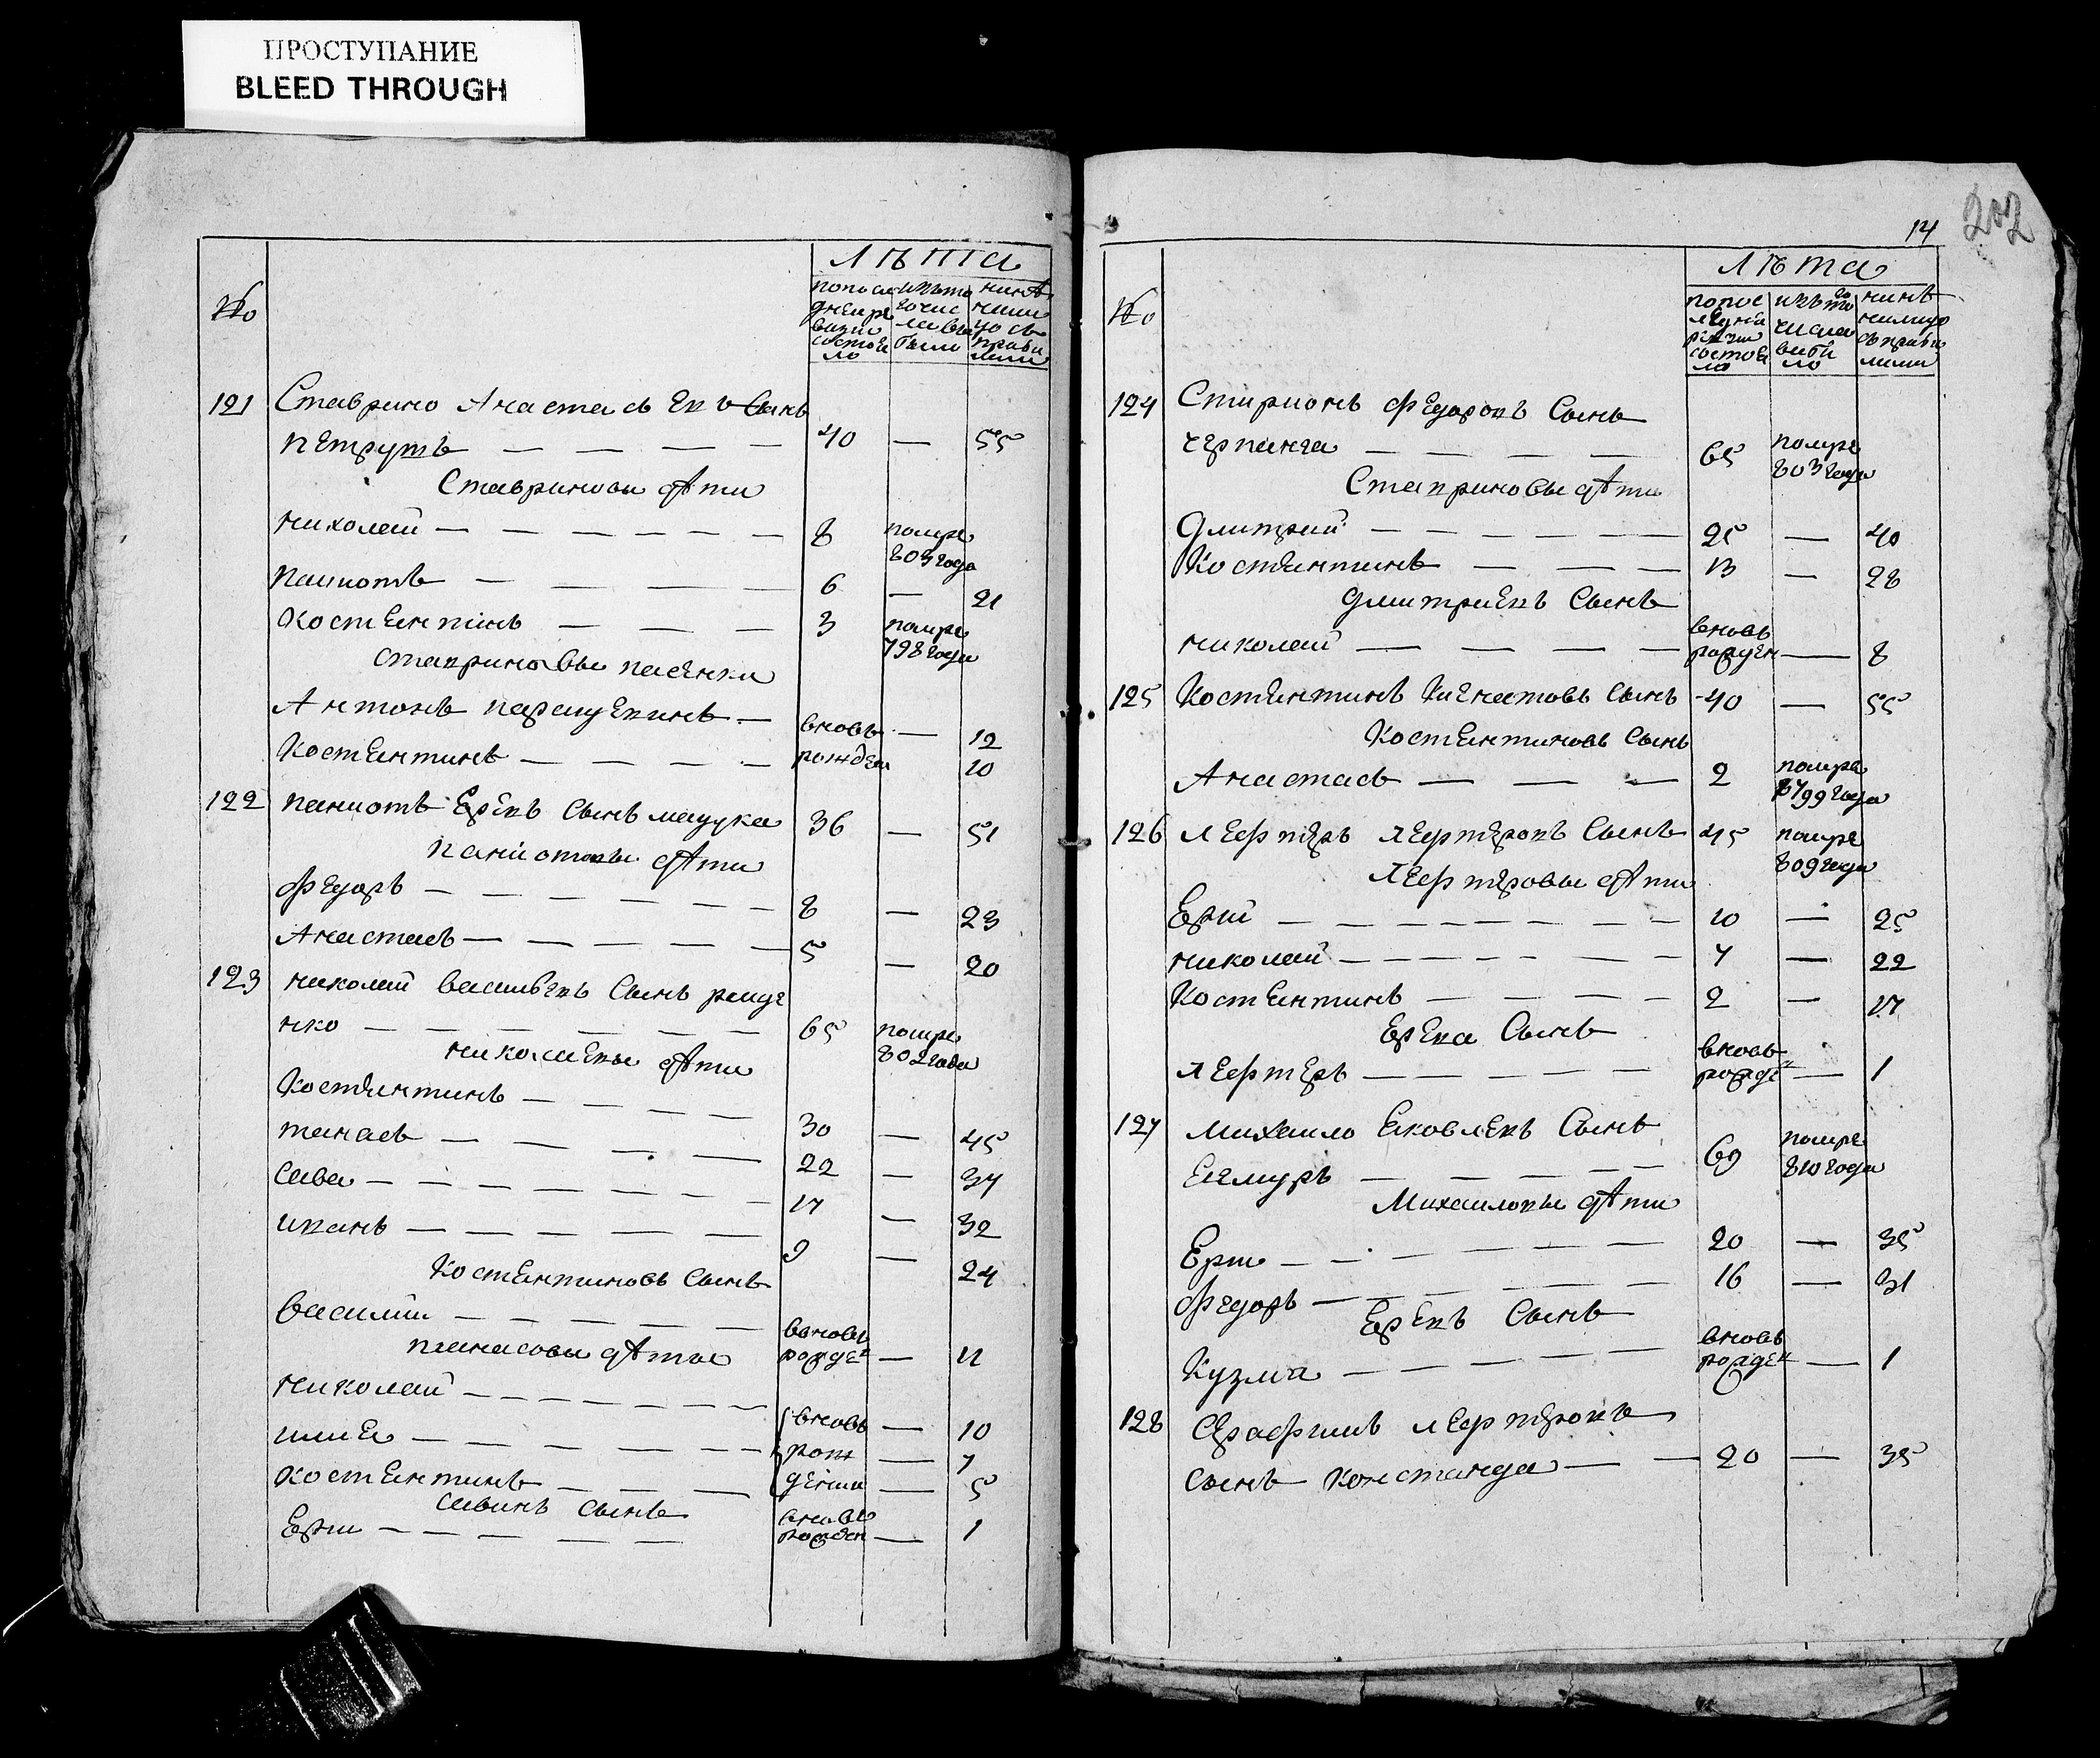 ПРОСТУПАНИЕ
BLEED THROUGH
Лѣта
№
попослѣдней ревизи состояло
изъ того числа выбыло
нинѣ
121 Ставрино Анастасьевъ Сынъ
Петруть — — — — 40 — 55
Ставриновы дѣти
Николай — — — — — — 8 помре 803 года
Паниотъ — — — — 6 — 21
Костентинъ — — — 3 помре 798 года
Ставриновы пасенки
Антонъ — вновь — 12
Костентинъ — — — — рожден 10
122 Паниотъ Еревъ Сынъ мацука 36 — 51
Паниотовы дѣти
Федоръ — — — — — — 8 — 23
Анастасъ — — — — — 5 — 20
123 Николай Васильевъ Сынъ
нко — — — — — — 65 помре 802 года
Николаевы дѣти
Костентинъ — — — — 30 — 45
танасъ — — — — 22 — 37
Сава — — — — — — — 17 — 32
иванъ — — — — — — 9 — 24
Костентиновъ Сынъ
Василий — — — — — вновь рожден — 11
танасовы дѣти
Николай — — — — — — — вновь — 10
илиа — — — — — — — рож — 7
Костентинъ — — — дении — 5
Савинъ Сынъ
Ери — — — — — вновь рожден — 1
14
202
Лѣта
№
попоследней ревизи состояло
изъ того числа выбило
нинѣ налицо
124 Стирионъ Федоровъ Сынъ
черпанга — — — — 65 помре 803 года
Ставриновы дѣти
Дмитрий — — — — — 25 — 40
Костентинъ — — — 13 — 28
Дмитриевъ Сынъ
Николай — — — — вновь рожден — 8
125 Костентинъ Сынъ 40 — 55
Костентиновъ Сынъ
Анастасъ — — — 2 помре 799 года
126 Лефтеръ Лефтеровъ Сынъ 45 помре 809 года
Лефтеровы дѣти
Ерий — — — — — — — 10 — 25
Николай — — — — — — — 7 — 22
Костентинъ — — — — 2 — 17
Ерева Сынъ
Лефтеръ — — — — — вновь рожден — 1
127 Михаило Ековлевъ Сынъ
Еглмуръ — — — — — 69 помре 810 года
Михаиловы дѣти
Ери — — — — — — 20 — 35
Федоръ — — — — — — 16 — 31
Еревъ Сынъ
Кузма — — — — — — вновь рожден — 1
128 Серафимъ Лефтеровъ
Сынъ констанда — — 20 — 35